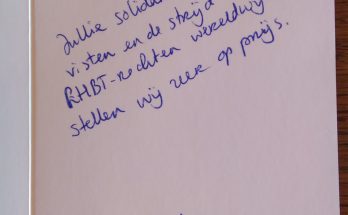 Jullie
visten en de strijd
RHBT-rechten wereldwijd
stellen wij zeer op prijs.